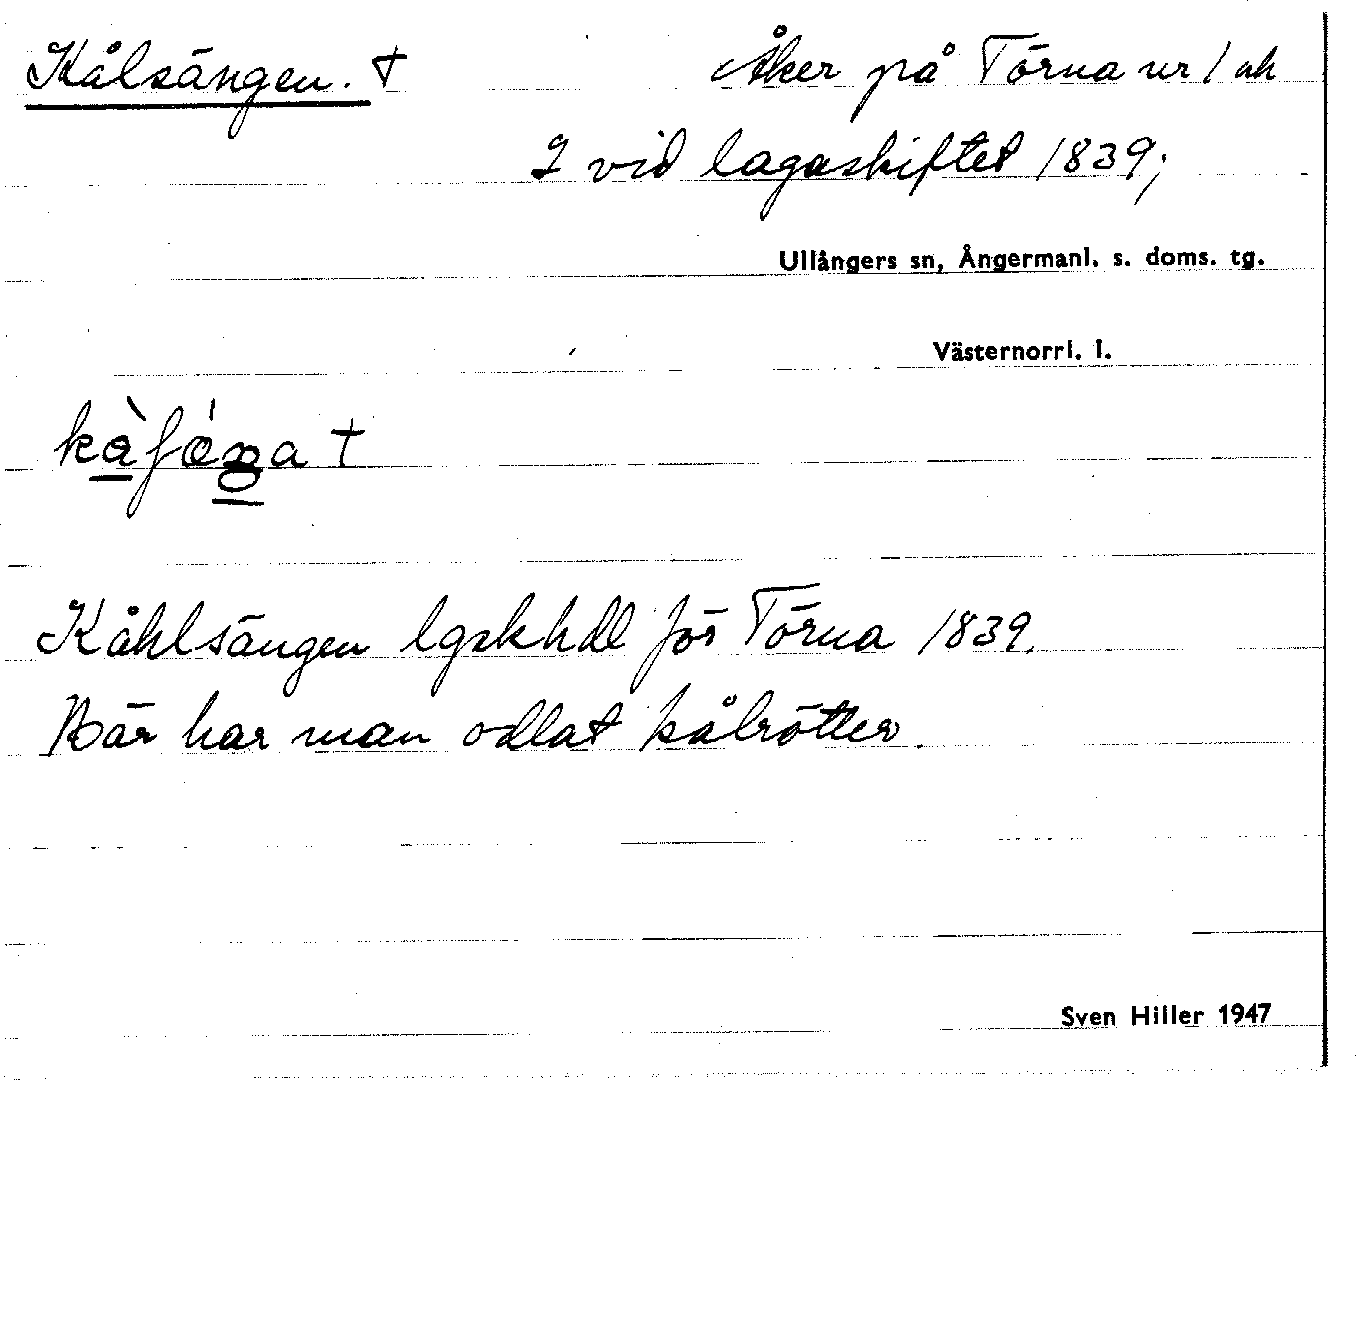 Kålsängen. † Åker på Törna nr 1 ak
2 vid lagaskiftet 1839;
Ullångers sn, Ångermanl. s. doms. tg.
Västernorrl. l.
Kåhlsängen lgskhdl för Törna 1839.
Här har man odlat kålrötter.
Sven Hiller 1947